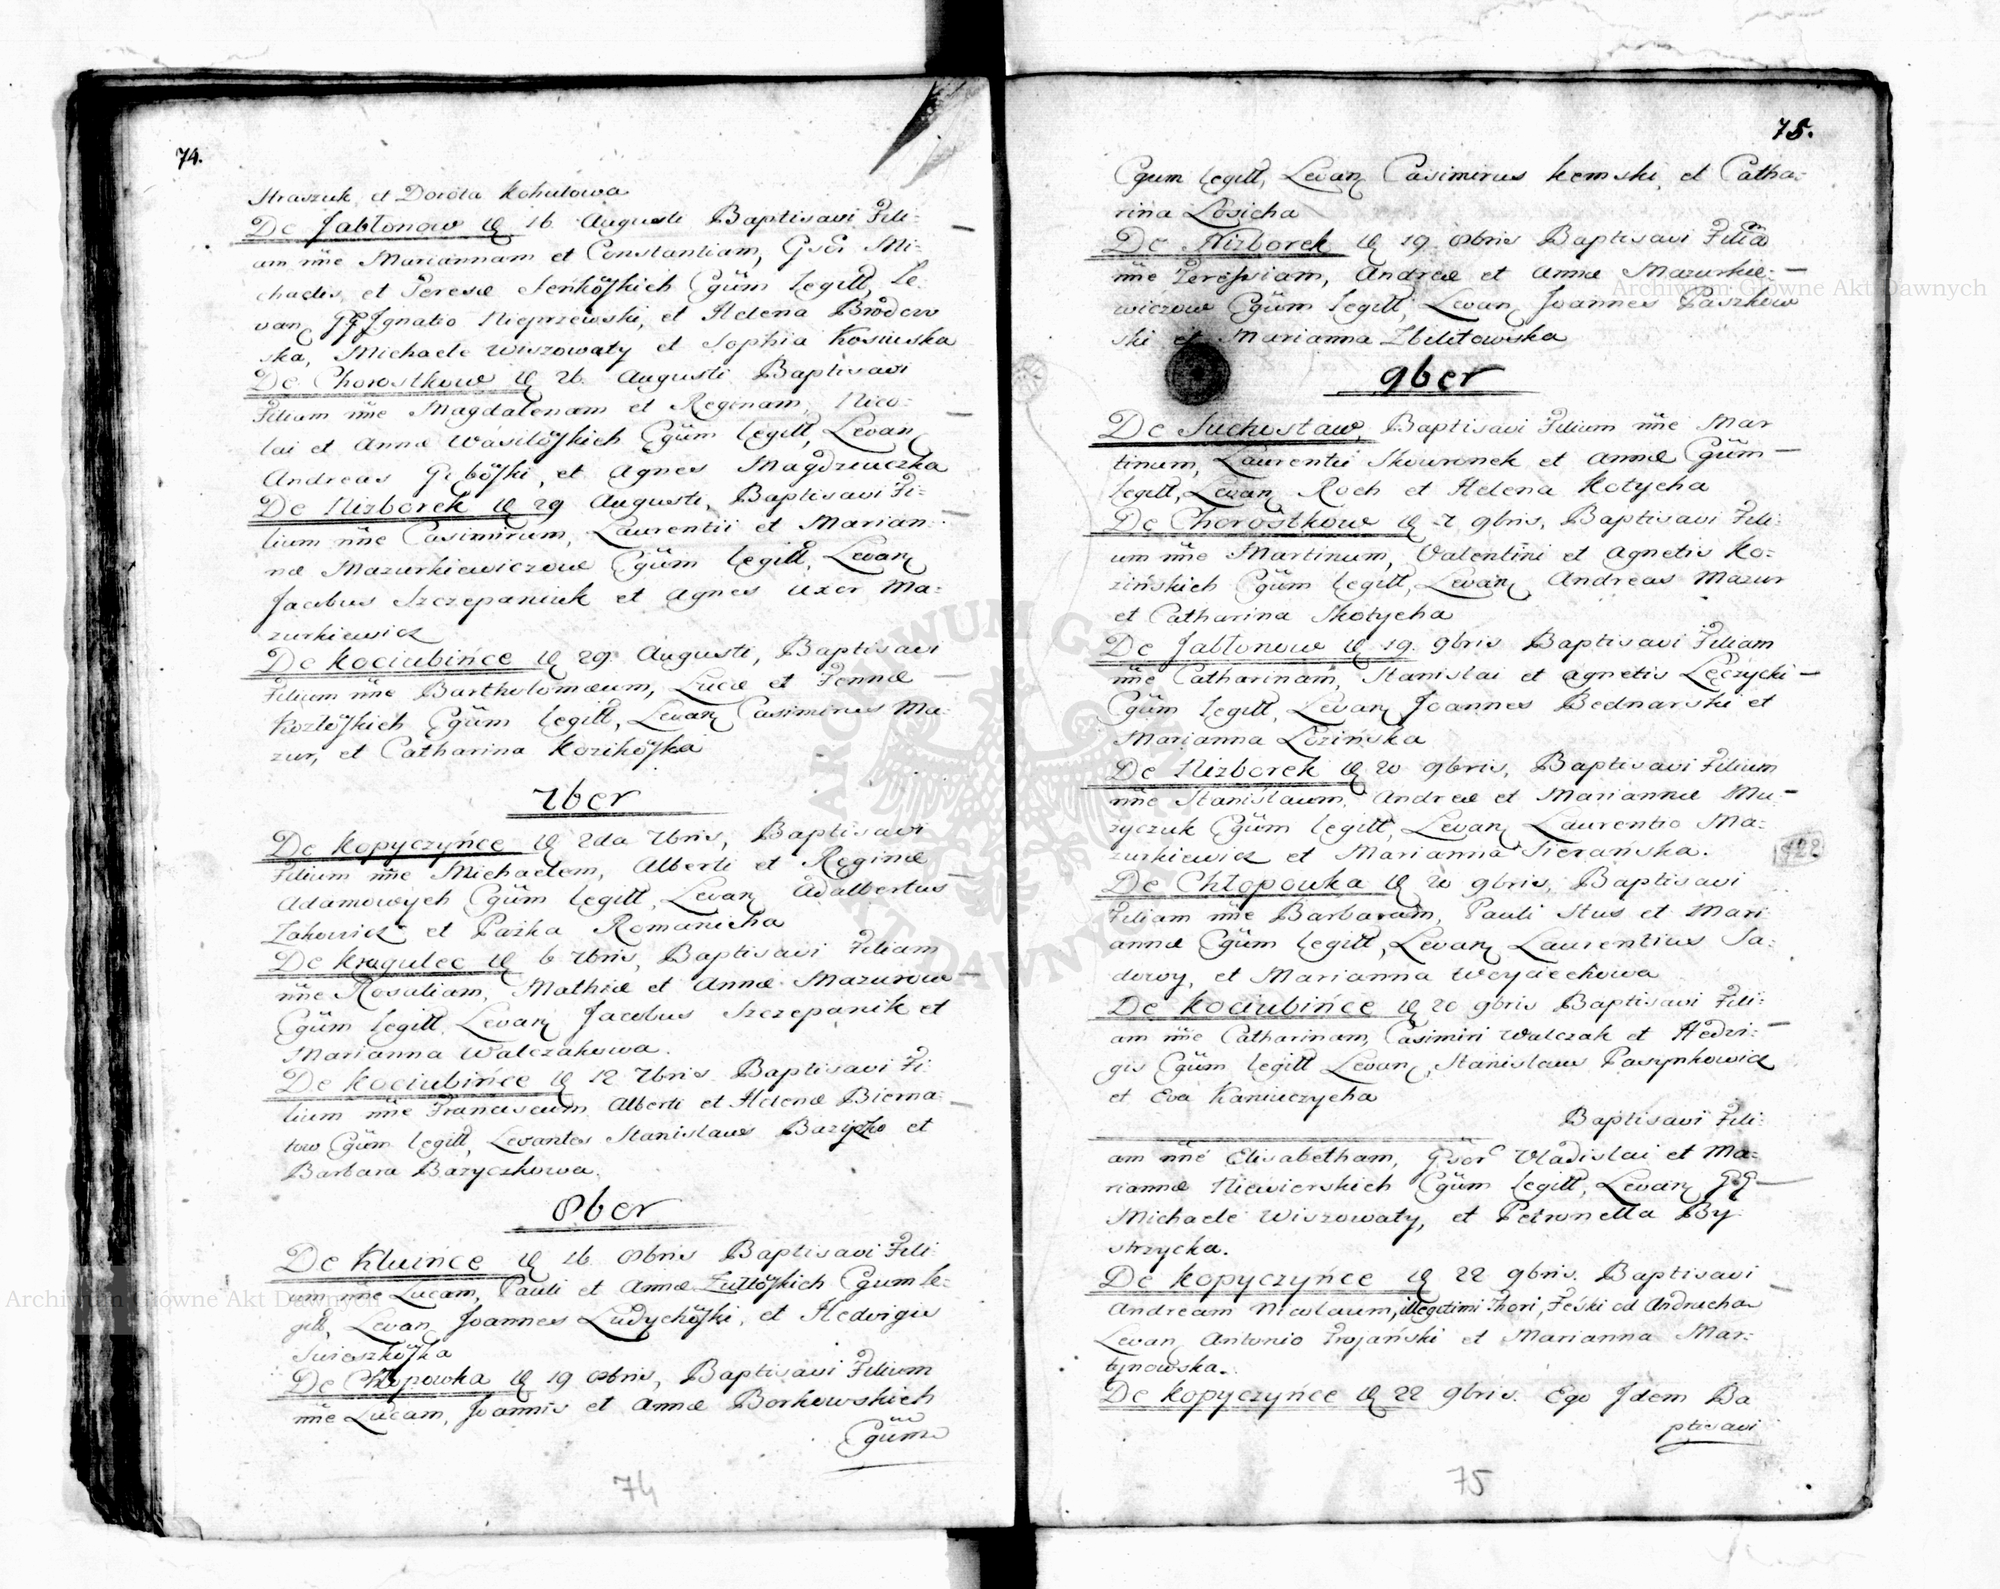 74.
Straszuk, et Dorota Kohutowa
De Jabłonow 16 Augusti Baptisavi Fili:
am nñe Mariannam et Constantiam, Gsor Mi:
chaelis, et Teresæ Senkoskich Cgüm legitt, Le:
van Ignatio Nieprzewski, et Helena Brodow
ska, Michaele Wiszowaty et Sophia Kosinska
De Chorostkow 26. Augusti Baptisavi
Filiam nñe Magdalenam et Reginam, Nico:
lai et Annæ Wasiloskich Cgüm legitt, Levan
Andreas Geboski, et Agnes Magdziuczka
De Nizborek 29 Augusti, Baptisavi Fi:
lium nñe Casimirum, Laurentii et Marian:
næ Mazurkiewiczow Cgüm legitt, Levan
Jacobus Szczepaniuk et Agnes uxor Ma:
zurkiewicz
De Kociubińce 29. Augusti, Baptisavi
Filium nñe Bartholomæum, Lucæ et Fennæ
Kozloskich Cgüm legitt, Levan Casimirus Ma:
zur, et Catharina Kozikoska
7ber
De Kopyczyńce 2da 7bris, Baptisavi
Filium nñe Michaelem, Alberti et Reginæ
Adamowych Cgüm legitt, Levan Adalbertus
Zakowicz et Paźka Romanicha
De Kragulec 6 7bris, Baptisavi Filiam
nñe Rosaliam, Mathiæ et Annæ Mazurow
Cgüm legitt, Levan Jacobus Szczepanik et
Marianna Walczakowa.
De Kociubińce 12 7bris Baptisavi Fi:
lium nñe Franciscum, Alberti et Helenæ Bierna:
tow Cgüm legitt, Levantes Stanislaus Baryczko et
Barbara Baryczkowa.
8ber
De Kluince 16 8bris Baptisavi Fili:
um nñe Lucam, Pauli et Annæ Cgum le:
gitt, Levan Joannes Ludychoski, et Hedvigis
Swierszkoska
De Chłopowka 19 8bris, Baptisavi Filium
nñe Lucam, Joannis et Annæ Borkowskich
Cgüm
74
75.
Cgum legitt, Levan Casimirus Kemski, et Catha:
rina Losicha
De Nizborek 19 8bris Baptisavi Filiã
nñe Teressiam, Andreæ et Annæ Mazurkie:
wiczow Cgüm legitt, Levan Joannes Paszkow
ski et Marianna Zbilitowska
9ber
De Suchostaw, Baptisavi Filium nñe Mar
tinum, Laurentii Skowronek et Annæ Cgüm
legitt, Levan Roch et Helena Kotycha
De Chorostkow 7 9bris, Baptisavi Fili:
um nñe Martinum, Valentini et Agnetis Ko:
zińskich Cgüm legitt, Levan Andreas Mazur
et Catharina Skotycha
De Jabłonow 19. 9bris Baptisavi Filiam
nñe Catharinam, Stanislai et Agnetis Lęczycki
Cgüm legitt, Levan Joannes Bednarski et
Marianna Lozińska
De Nizborek 20 9bris, Baptisavi Filium
nñe Stanislaum, Andreæ et Mariannæ Mu:
zyczuk Cgüm legitt, Levan Laurentio Ma:
zurkiewicz et Marianna Sierańska.
De Chłopowka 20 9bris, Baptisavi
Filiam nñe Barbaram, Pauli Stus et Mari
annæ Cgüm legitt, Levan Laurentius Sa:
dowy, et Marianna Woyciechowa
De Kociubińce 20 9bris Baptisavi Fili:
am nñe Catharinam, Casimiri Walczak et Hedvi:
gis Cgüm legitt Levan, Stanislaus Pasynkowicz
et Eva Kaniuczycha
Baptisavi Fili:
am nñe Elisabetham, Gsor Vladislai et Ma:
riannæ Niewierskich Cgüm legitt, Levan GG
Michaele Wiszowaty, et Petronella By
strzycka.
De Kopyczyńce 22 9bris. Baptisavi
Andream Nicolaum, illegetimi Thori, Feśki od Andrucha
Levan Antonio Trojański et Marianna Mar:
tynowska.
De Kopyczyńce 22 9bris. Ego Idem Ba
ptisavi
75
122
Archiwum Główne Akt Dawnych
Archiwum Główne Akt Dawnych
ARCHIWUM GŁÓWNE AKT DAWNYCH